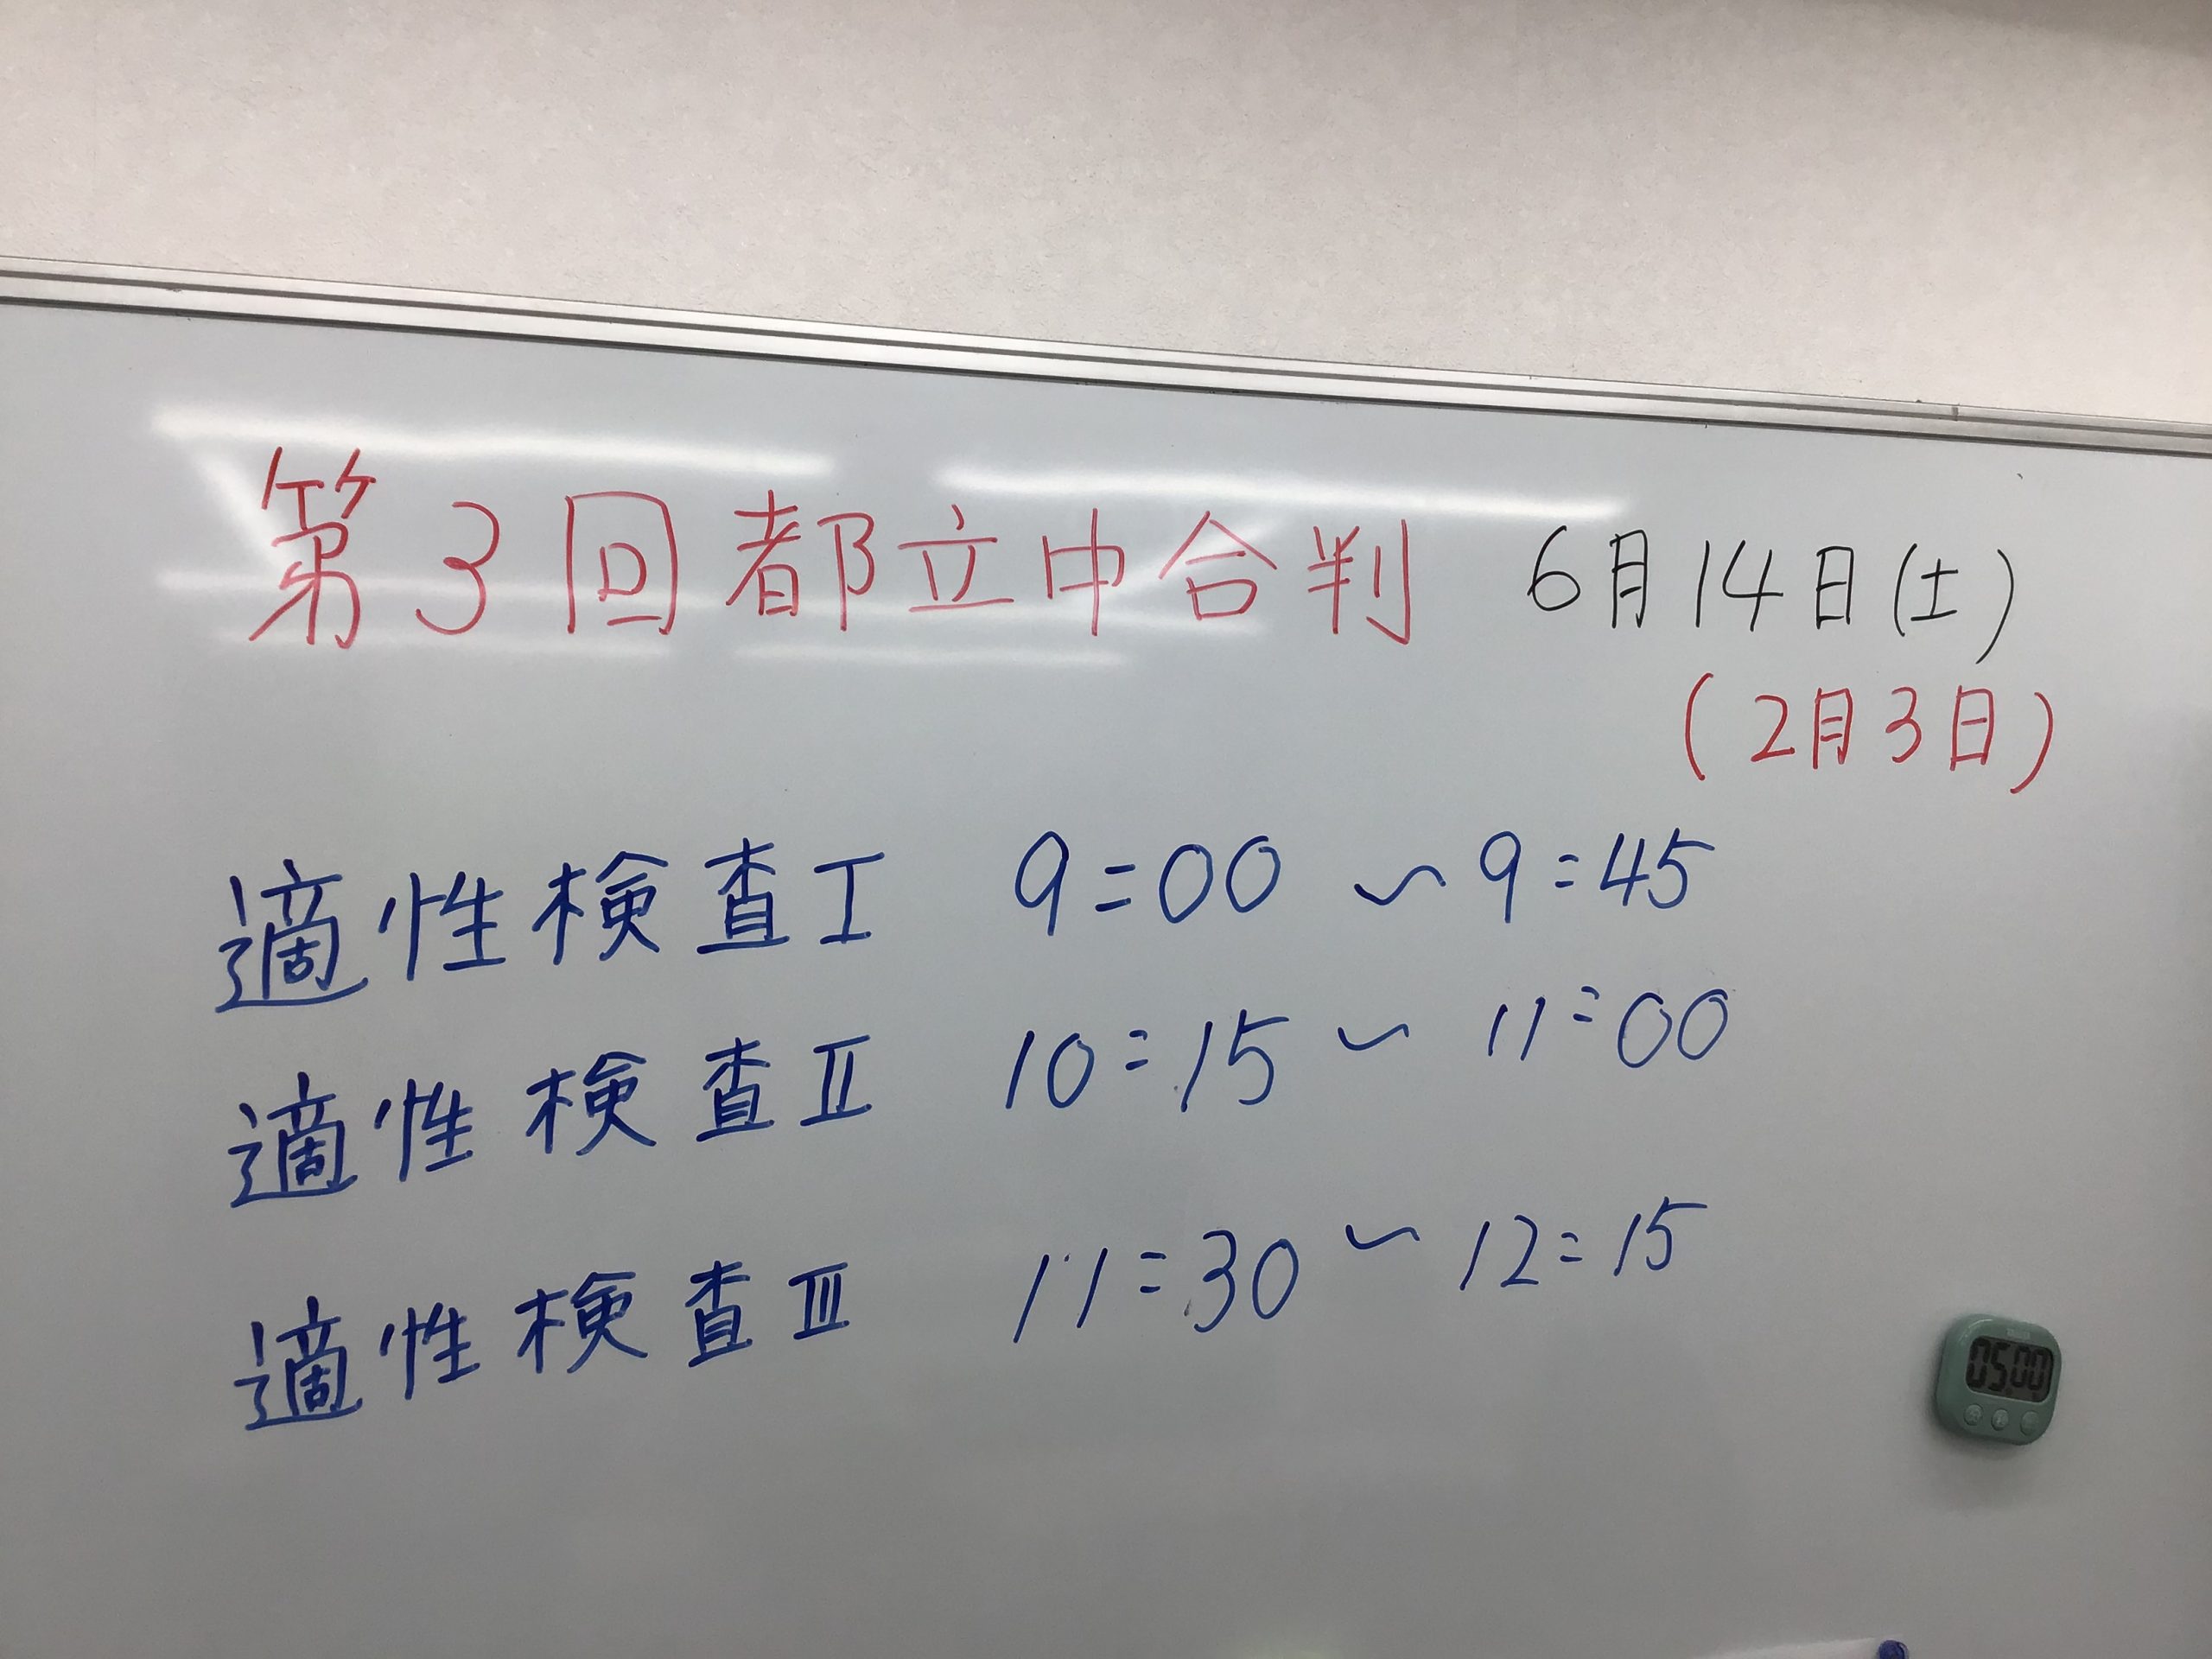 第3回都立中合判 6月14日(土)
(2月3日)
適性検査Ⅰ 9:00 〜 9:45
適性検査Ⅱ 10:15 〜 11:00
適性検査Ⅲ 11:30 〜 12:15
05:00